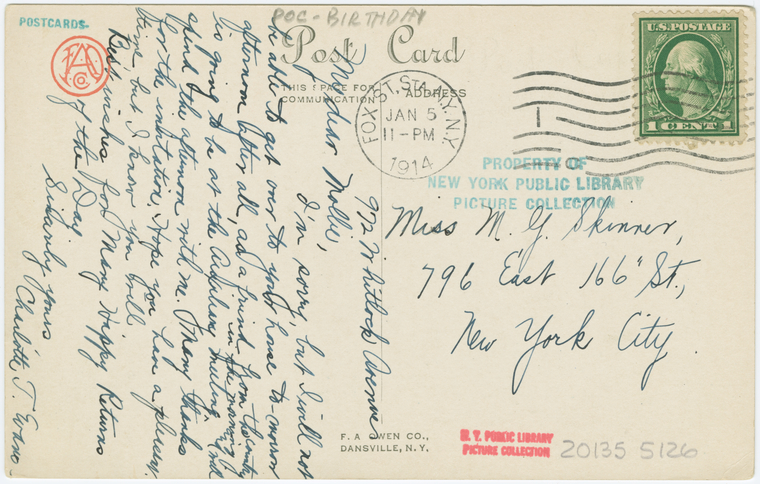 POSTCARDS-
POC-BIRTHDAY
Post Card
THIS SPACE FOR
COMMUNICATION
ADDRESS
FOX ST. STA. N.Y. N.Y.
JAN 5
11-PM
1914
1
U.S. POSTAGE
1 CENT 1
PROPERTY OF
NEW YORK PUBLIC LIBRARY
PICTURE COLLECTION
Miss M. G. Skinner,
796 East 166" St.,
New York City.
972 Whitlock Avenue
My dear Mollie,
I'm sorry, but I will not
be able to get over to your house to-morrow
afternoon after all, as a friend from the city
is going to be at the meeting in the morning and will
spend the afternoon with me. Many thanks
for the invitation. Hope you have a pleasant
time, but I know you will.
Best wishes for Many Happy Returns
of the Day
Sincerely yours
Charlotte T. Evans
F. A. OWEN CO.,
DANSVILLE, N.Y.
N. Y. PUBLIC LIBRARY
PICTURE COLLECTION
20135 5126